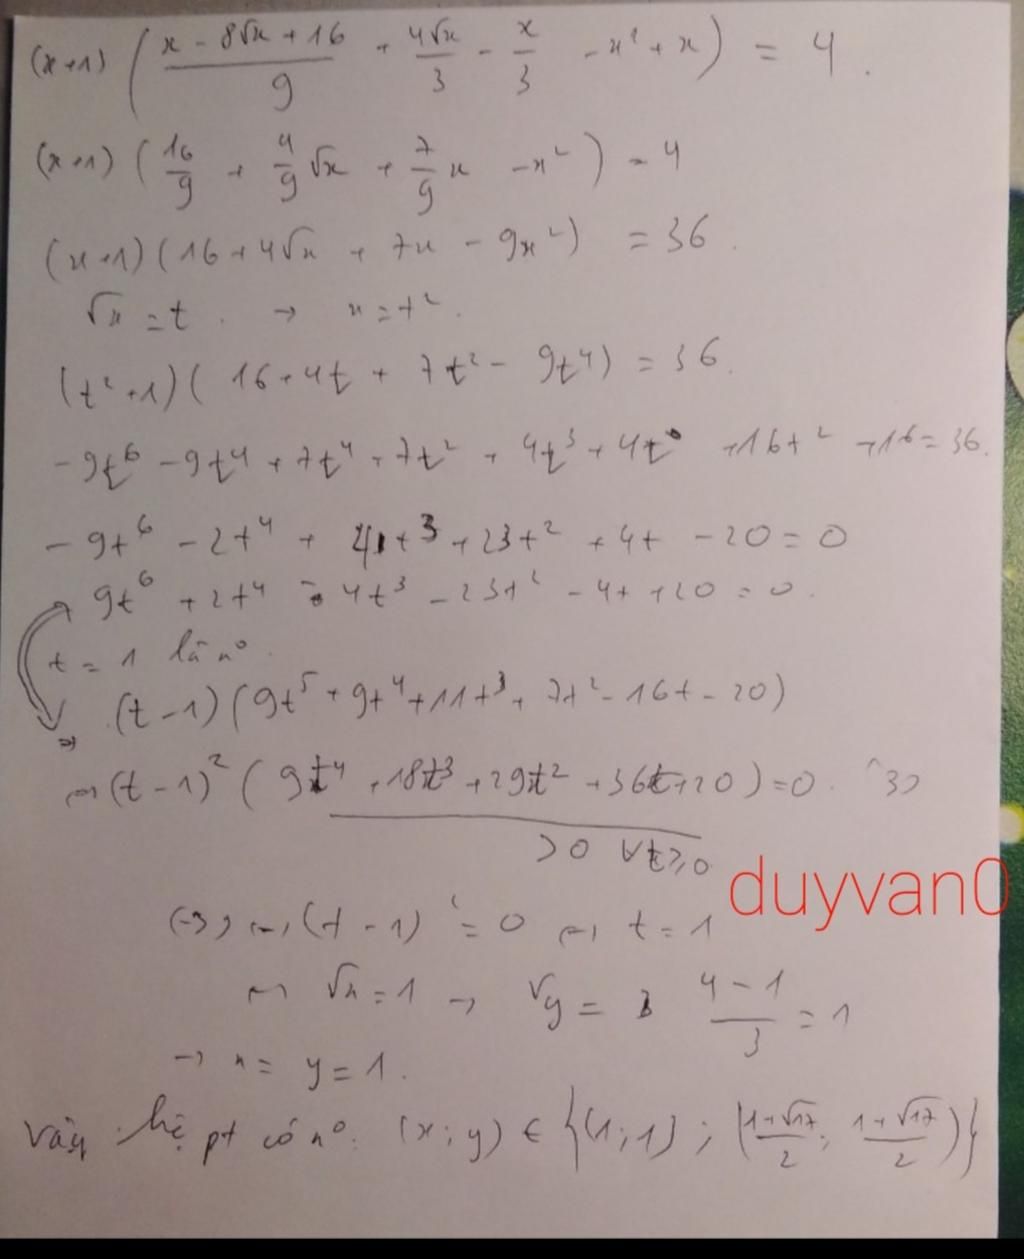 (x+1) ( (x - 8√x + 16)/9 + 4√x/3 - x/3 - x² + x ) = 4.
(x+1) ( 16/9 + 4/9 √x + 7/9 x - x² ) = 4
(x+1) ( 16 + 4√x + 7x - 9x² ) = 36.
√x = t. → x = t².
(t²+1) ( 16 + 4t + 7t² - 9t⁴ ) = 36.
-9t⁶ - 9t⁴ + 7t⁴ + 7t² + 4t³ + 4t + 16t² + 16 = 36.
-9t⁶ - 2t⁴ + 4t³ + 23t² + 4t - 20 = 0
9t⁶ + 2t⁴ - 4t³ - 23t² - 4t + 20 = 0.
t = 1 là n°.
⇒ (t-1) (9t⁵ + 9t⁴ + 11t³ + 7t² - 16t - 20)
⇔ (t-1)² ( 9t⁴ + 18t³ + 29t² + 36t + 20 ) = 0. (3)
> 0 ∀t ≥ 0
duyvan0
(3) ⇔ (t-1)² = 0 ⇔ t = 1
⇔ √x = 1 → √y = (4-1)/3 = 1
→ x = y = 1.
Vậy hệ pt có n°: (x; y) ∈ {(1; 1); ((1+√17)/2; (1+√17)/2)}